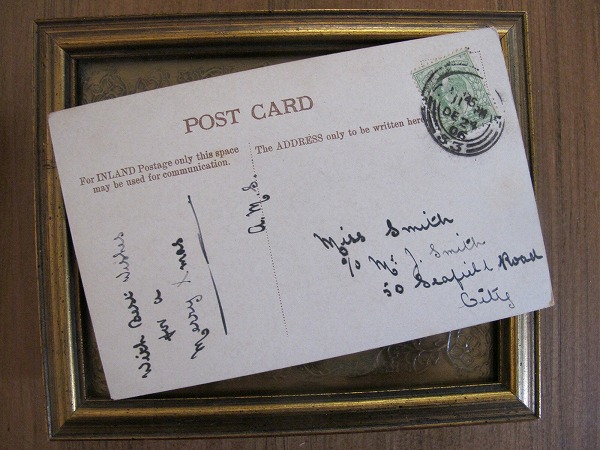 POST CARD
For INLAND Postage only this space
may be used for communication.
The ADDRESS only to be written here
With Best Wishes
for a
Merry Xmas
A.M.S.
Miss Smith
c/o Mr J. Smith
50 Seafield Road
City
DE
06